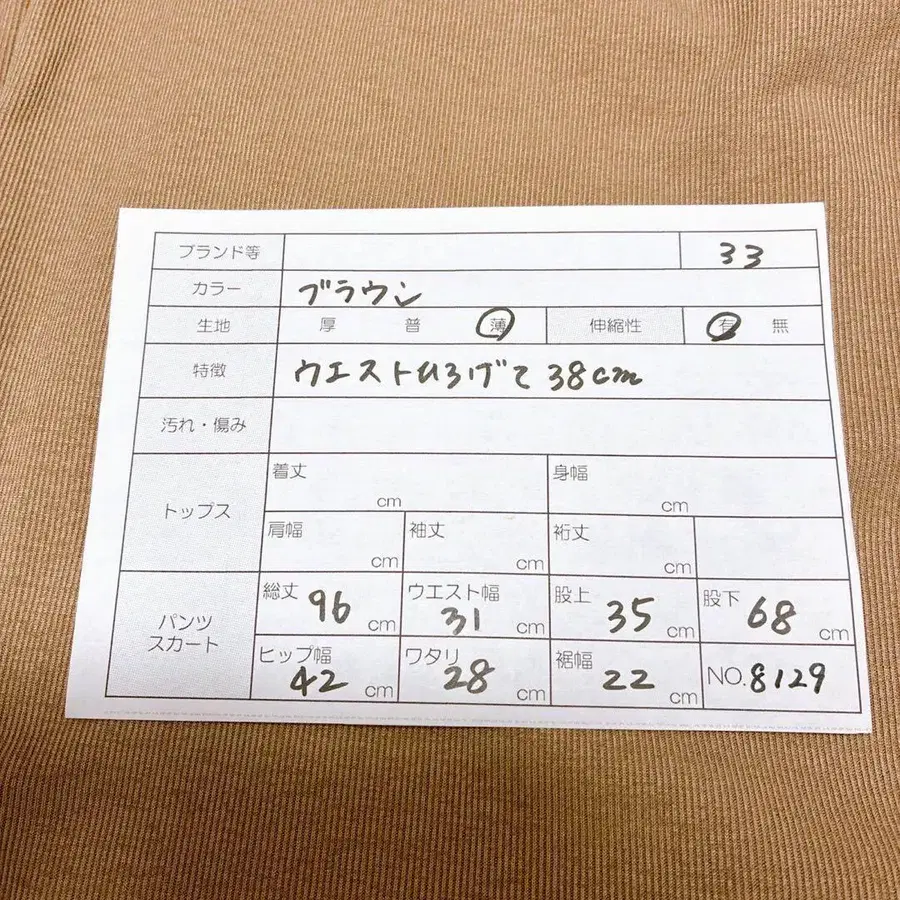 ブランド等 33
カラー ブラウン
生地 厚 普 薄 伸縮性 有 無
特徴 ウエストひろげて 38cm
汚れ・傷み
トップス 着丈 cm 身幅 cm
肩幅 cm 袖丈 cm 裄丈 cm
パンツ スカート 総丈 96 cm ウエスト幅 31 cm 股上 35 cm 股下 68 cm
ヒップ幅 42 cm ワタリ 28 cm 裾幅 22 cm NO. 8129